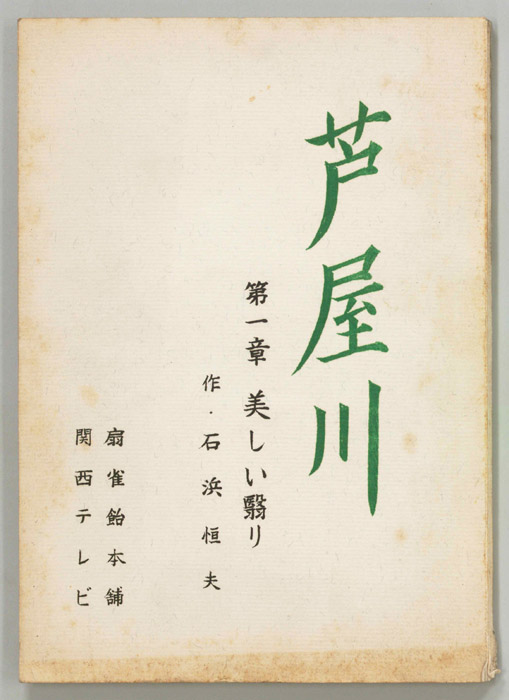 芦屋川
第一章 美しい翳り
作・石浜恒夫
扇雀飴本舗
関西テレビ